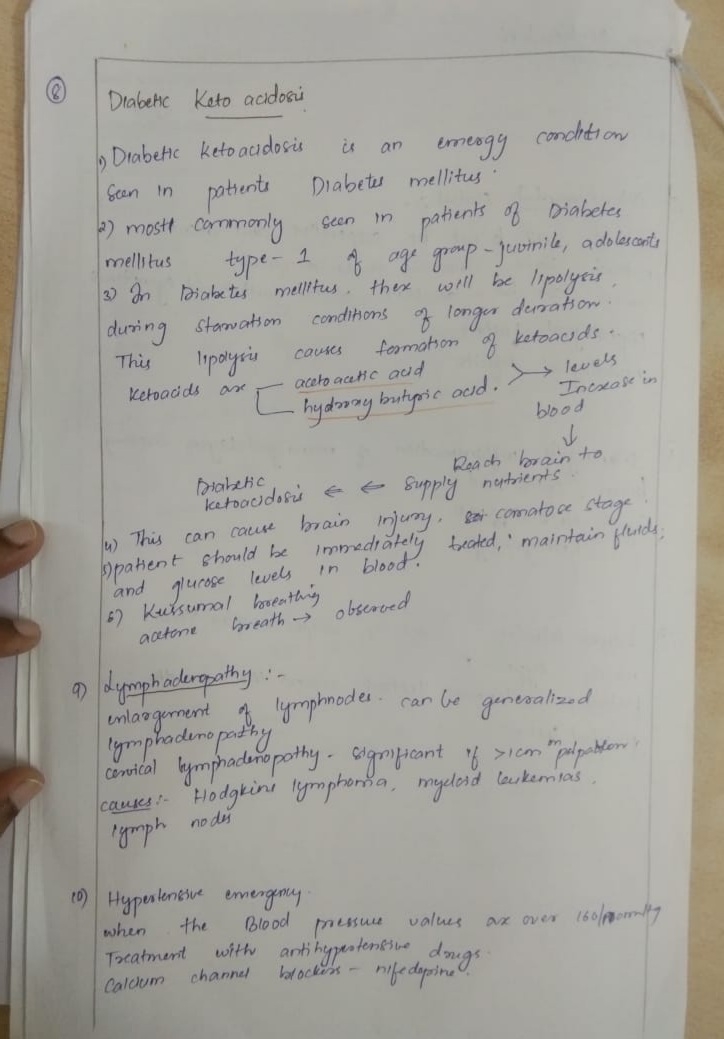 8
Diabetic Keto acidosis
1) Diabetic ketoacidosis is an emergy condition
seen in patients Diabetes mellitus.
2) most commonly seen in patients of Diabetes
mellitus type-1 of age group - juvinile, adolescents
3) In Diabetes mellitus. there will be lipolysis.
during starvation conditions of longer duration.
This lipolysis causes formation of ketoacids.
ketoacids are acetoacetic acid
hydroxy butyric acid. → levels
Increase in
blood
↓
Reach brain to
supply nutrients
← ← Diabetic
ketoacidosis
4) This can cause brain injury. comatose stage.
5) patient should be immediately treated, maintain fluids,
and glucose levels in blood.
6) Kussumal breathing
acetone breath → observed
9) Lymphadenopathy :-
enlargement of lymphnodes. can be generalized
lymphadenopathy
cervical lymphadenopathy - significant if >1cm in
causes :- Hodgkins lymphoma, myeloid leukemias.
lymph nodes
10) Hypertensive emergency.
when the Blood pressure values are over
Treatment with antihypertensive drugs.
Calcium channel blockers - nifedepine.